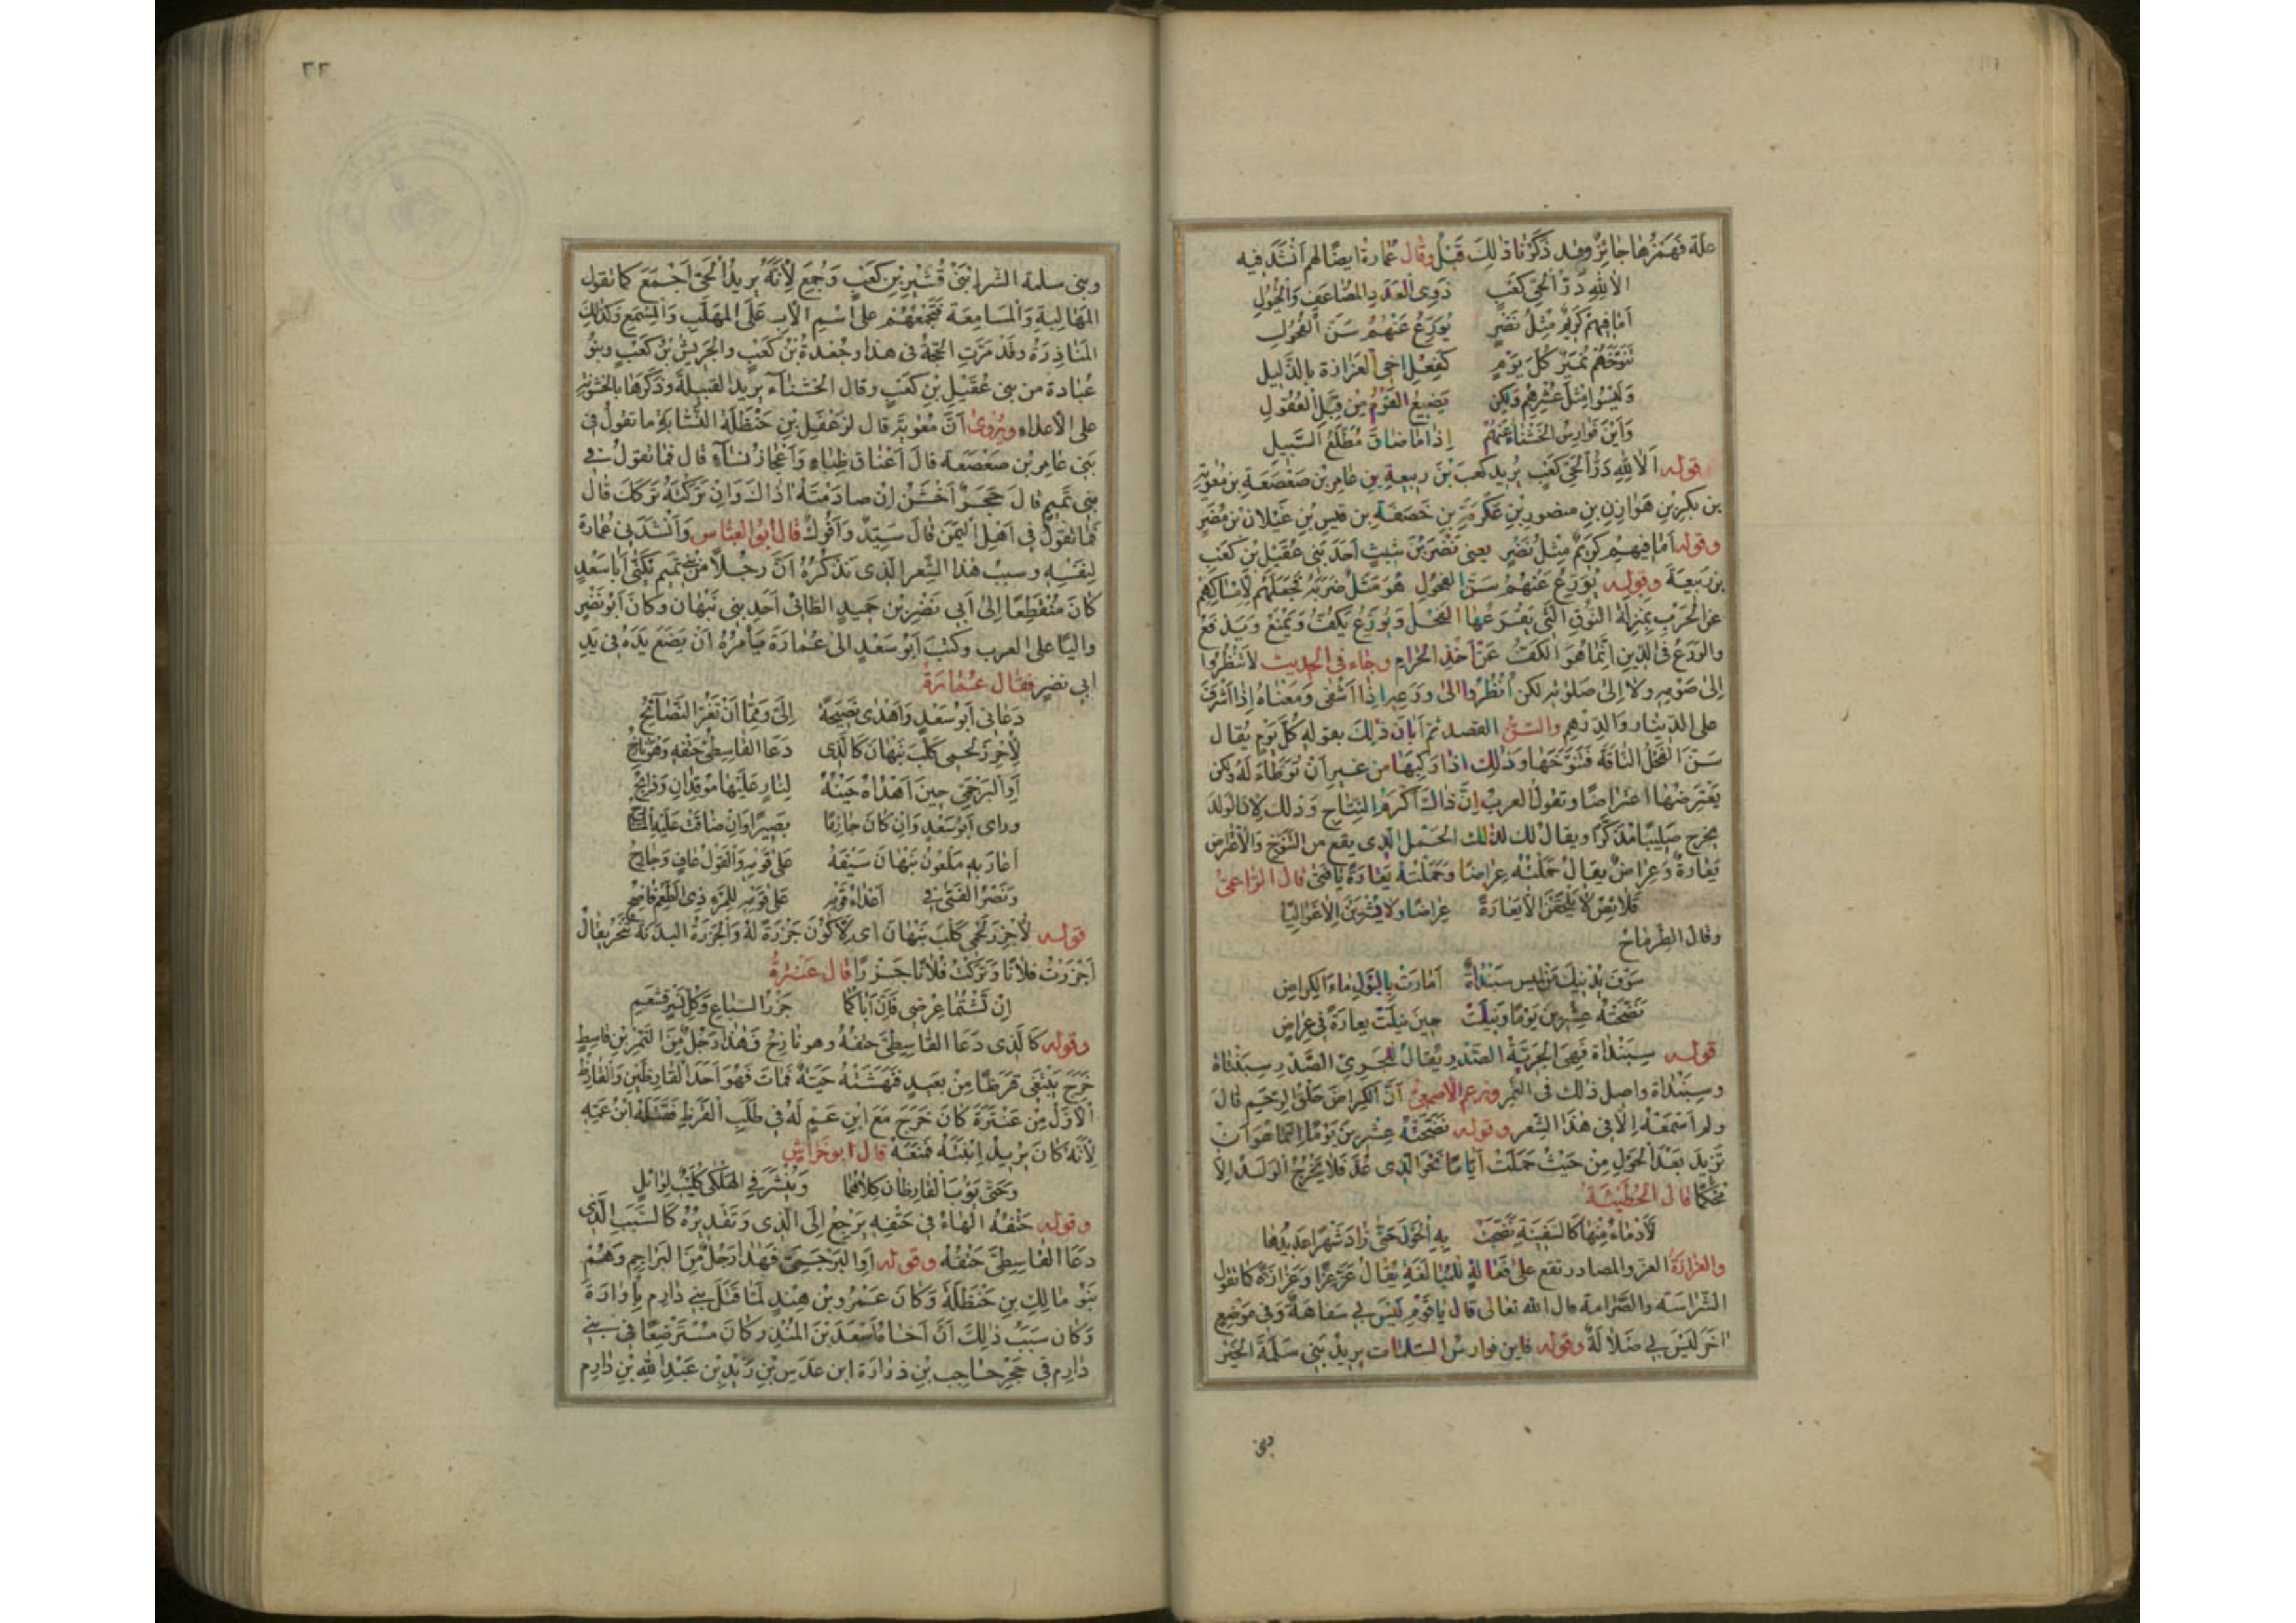 علة فَهَمْزُها جائِزٌ وقد ذَكَرْنا ذلِكَ قَبْلُ وقال عُمارة ايضًا لهم اَنْشَدَ فيه
الا لِلّهِ دَرُّ الْحَىِّ كَعْبٍ ذَوِى الْعَدَدِ المُضاعَفِ وَالْخُيُولِ
اَمَا فِيهِمْ كَرِيمٌ مِثْلُ نَصْرٍ يُوَرِّعُ عَنْهُمُ سَنَنَ الْفُحُولِ
تَنَوَّخَهُمْ نُمَيْرٌ كُلَّ يَوْمٍ كَفِعْلِ اخِى الْعَزازة بالذَّلِيلِ
وَلَيْسُوا مِثْلَ عُشْرِهِمُ وَلكِنْ يَضِيعُ القَوْمُ مِنْ قِبَلِ الْعُقُولِ
وَاَيْنَ فَوَارِسُ الخَشْناءِ عَنْهُمْ اِذا ما ضاقَ مُطَّلَعُ السَّبِيلِ
قوله اَلا لِلّهِ دَرُّ الْحَىِّ كَعْبٍ يُرِيد كَعْبَ بْنَ رَبِيعةَ بنِ عامِرِ بْنِ صَعْصَعَةَ بنِ مُعٰوِيَةَ
بن بَكْرِ بْنِ هَوازِنِ بنِ منصورِ بْنِ عِكْرِمَةَ بنِ خَصَفَةَ بن قيس بنِ عَيْلان بْنِ مُضَرَ
وقوله اَمَا فِيهِمْ كَرِيمٌ مِثْلُ نَصْرٍ يعنى نَصْرَ بْنَ شَبَثٍ اَحَدَ بَنِى عُقَيْلِ بْنِ كَعْبِ
بن رَبيعةَ وقوله يُوَرِّعُ عَنْهُمُ سَنَنَ الفحول هُوَ مَثَلٌ ضَرَبَهُ فَجَعَلَهُمْ لاِمْساكِهِمْ
عن الْحَرْبِ بِمَنْزِلَةِ النُّوقِ الَّتِى يَقْرَعُهَا الفَحْلُ وَيُوَرِّعُ يَكُفُّ وَيَمْنَعُ وَيَدْفَعُ
والوَرَعُ فى الدِّينِ اِنَّما هُوَ الكَفُّ عَنْ اَخْذِ الْحَرامِ وجاء فى الحديث لا تَنْظُرُوا
اِلى صَوْمِهِ ولا اِلى صَلوتِهِ لكن انْظُرُوا الى وَرَعِهِ اِذا اَشْفى وَمَعْناهُ اِذا اَشْرَفَ
على الدِّينار وَالدِّرْهم والسَّنَنُ القصد ثم اَبانَ ذلِكَ بقوله كُلَّ يَوْمٍ يُقال
سَنَّ الفَحْلُ النَّاقَةَ فَتَنَوَّخَهَا وَذلِكَ اذا رَكِبَها من غيرِ اَنْ تُوَطَّاَ لَهُ ولكن
يَعْتَرِضُها اعْتِراضًا وتقول العرب اِنَّ ذالك اَكْرَمُ النِّتاج وَذلك لان الْوَلَدَ
يخرج صَلِيبًا مُذَكَّرًا ويقال لك لذلك الحَمْل الذى يقع من التَّنَوُّخِ وَالْاعْتِراضِ
يَعارَةٌ وَعِراضٌ يقال حَمَلَتْهُ عِراضًا وَحَمَلَتْهُ يَعارَةً يا فَتى قال الرَّاعِى
قَلائِصُ لا يُلْقَحْنَ الا يَعارَةً عِراضًا ولا يُشْرَيْنَ الا غَوالِيَا
وقال الطِّرِمّاح
سَوْفَ تُدْنِيكَ مِنْ لَمِيس سَبَنْداةٌ اَمارَتْ بالبَوْلِ ماءَ الْكِراضِ
نَضَّجَتْهُ عِشْرِينَ يَوْمًا وَنِيلَتْ حِينَ نِيلَتْ يعارَةً فى عِراضِ
قوله سَبَنْداة فَهِىَ الجَرِيئَةُ الصَّدْرِ يُقال لِلْجَرِىءِ الصَّدْرِ سبنتاة
وسبنداة واصل ذلك فى النَّمِر وزعم الاصمعى اَنَّ الْكِراضَ حَلَقُ الرَّحِمِ قال
ولم اَسْمَعْهُ اِلّا فى هذَا الشِّعر وقوله نَضَّجَتْهُ عِشْرِينَ يَوْمًا اِنَّما هو اَنْ
تَزِيدَ بَعْدَ الْحَوْلِ مِنْ حَيْثُ حَمَلَتْ اَيَّامًا نَحْوَ الَّذِى عَدَّ فَلا يَخْرُجُ الْوَلَدُ اِلّا
مُحْكَمًا قال الحُطَيْئَة
لِاَدْماءَ مِنْها كَالسَّفِينَةِ نَضَّجَتْ بِهِ الْحَوْلَ حَتّى زادَ شَهْرًا عَدِيدُها
والعزازةُ العزّ والمصادر تقع على فَعالَةٍ لِلْمُبالَغَةِ يُقالُ عَزَّ عِزًّا وَعَزازَةً كما تقول
الشَّراسَة والصَّرامة قال الله تعالى قال يا قَوْمِ لَيْسَ بى سَفاهَةٌ وَفى مَوْضِعٍ
اخَرَ لَيْسَ بى ضَلالَةٌ وقوله فاين فوارسُ السَّلمات يريد بَنِى سَلَمَةَ الخَيْرِ
وبنى
٢٢
وبنى سلمة الشّرّ ابْنَىْ قُشَيْرِ بْنِ كَعْبٍ وَجُمِعَ لِاَنَّهُ يريدُ الْحَىَّ اَجْمَعَ كما تقول
المَهالِبَةِ وَالْمَسامِعَة فَتَجْمَعُهُمْ على اسْمِ الْاَبِ عَلَى المُهَلَّبِ وَالْمِسْمَعِ وَكَذلِكَ
المَناذِرَةُ وقَدْ مَرَّتِ الحُجَّةُ فى هذا وجُعْدَةُ بْنُ كَعْبٍ والْحَرِيشُ بْنُ كَعْبٍ وبنُو
عُبادة من بنى عُقَيْلِ بْنِ كَعْبٍ وقال الخَشْناء يريد القبيلةَ وذَكَرَها بالخشونة
على الاعداء ويُرْوى اَنَّ مُعٰوِيَةَ قال لِدَغْفَلِ بْنِ حَنْظَلَةَ النَّسّابَةِ ما تقولُ فى
بَنِى عامِرِ بْنِ صَعْصَعَةَ قالَ اَعْناق ظِباءٍ وَاَعْجازُ نِساءٍ قال فَما تَقُولُ فى
بنى تَمِيمٍ قالَ حَجَرٌ اَخْشَنُ اِنْ صادَمْتَهُ اذاكَ وَاِنْ تَرَكْتَهُ تَرَكَكَ قالَ
فَما تقولُ فى اَهْلِ اليَمَنِ قالَ سَيِّدٌ وَاَنْوَكُ قال ابو العبّاس وَاَنْشَدَنِى عُمارَةُ
لِنَفْسِهِ وسبب هذا الشِّعر الّذى نَذْكُرُهُ اَنَّ رَجُلاً من تميم يُكَنّى اَبا سَعْدٍ
كانَ مُنْقَطِعًا اِلى اَبى نَصْرِ بْنِ حُمَيْدٍ الطائىّ اَحَدِ بنى نَبْهان وكانَ اَبُو نَصْرٍ
واليًا على العرب وكتبَ اَبُو سَعْدٍ الى عُمارَةَ يَأْمُرُهُ اَنْ يَضَعَ يَدَهُ فى يَدِ
ابى نصرٍ فقال عُمارَةُ
دَعانِى اَبُو سَعْدٍ وَاَهْدى نَصِيحَةً اِلَىَّ وَمِمّا اَنْ تَغُرَّ النَّصائِحُ
لِأُجْزِرَ لَحْمِى كَلْبَ نَبْهانَ كَالَّذِى دَعَا القاسِطِىَّ حَتْفُهُ وَهْوَ نازِحُ
اَوِ البُرْجُمِىِّ حِينَ اَهْداهُ حَيْنُهُ لِنارٍ عَلَيْها مُوقِدانِ وَذابِحُ
وراى اَبُو سَعْدٍ وَاِنْ كانَ حازِمًا بَصِيرًا وَاِنْ ضاقَتْ عَلَيْهِ
اَغارَ بِهِ مَلْعُونُ نَبْهانَ سَيْفَهُ عَلى قَوْمِهِ وَالْقَوْلُ عافٍ وَجارِحُ
وَنَصْرُ الفَتى فى اَعْداءَ قَوْمِهِ عَلى قَوْمِهِ لِلْمَرْءِ ذِى الطَّعْمِ فاضِحُ
قوله لِأُجْزِرَ لَحْمِى كَلْبَ نَبْهانَ اى لِأَكُونَ جَزَرَةً لَهُ وَالْجَزَرَةُ البدنة تُنْحَرُ يقال
اَجْزَرْتُ فلانًا وَتَرَكْتُ فُلانًا جَزَرًا قال عَنْتَرَةُ
اِنْ تَشْتُما عِرْضِى فَاِنَّ اَباكُما جَزَرُ السِّباعِ وَكُلِّ نَسْرٍ قَشْعَمِ
وقوله كَالَّذِى دَعَا القاسِطِىَّ حَتْفُهُ وهو نازِحُ فَهذا رَجُلٌ مِنَ النَّمِرِ بْنِ قاسِطٍ
خَرَجَ يَبْتَغِى قَرَظًا مِنْ بَعِيدٍ فَنَهَشَتْهُ حَيَّةٌ فَماتَ فَهُوَ اَحَدُ القارِظَيْنِ وَالقارِظُ
الْاَوَّلُ مِنْ عَنَزَةَ كانَ خَرَجَ مَعَ ابْنِ عَمٍّ لَهُ فى طَلَبِ القَرَظِ فَقَتَلَهُ ابْنُ عَمِّهِ
لِأَنَّهُ كانَ يُرِيدُ ابْنَتَهُ فَمَنَعَهُ قال ابو خِراش
وَحَتّى يَؤُبَ القارِظانِ كِلاهُما وَيُنْشَرَ فِى الهَلْكى كُلَيْبٌ لِوائِلِ
وقوله حَتْفُهُ الْهاءُ فى حَتْفِهِ يَرْجِعُ اِلَى الَّذِى وَتَقْدِيرُهُ كَالسَّبَبِ الَّذِى
دعَا الْقاسِطِىَّ حَتْفُهُ وقوله اَوِ البُرْجُمِىِّ فَهذا رَجُلٌ مِنَ البَراجِمِ وَهُمْ
بَنُو مالِكِ بنِ حَنْظَلَةَ وَكانَ عَمْرُو بْنُ هِنْدٍ لَمّا قَتَلَ بنى دارِم بِأُوارَةَ
وَكان سَبَبُ ذلِكَ اَنَّ اَخاهُ اَسْعَدَ بْنَ المُنْذِرِ كانَ مُسْتَرْضِعًا فى بنى
دارِم فى حَجْرِ حاجِب بْنِ ذرارة ابن عدَسِ بْنِ زَيْدِ بْنِ عَبْدِ اللهِ بْنِ دارِم